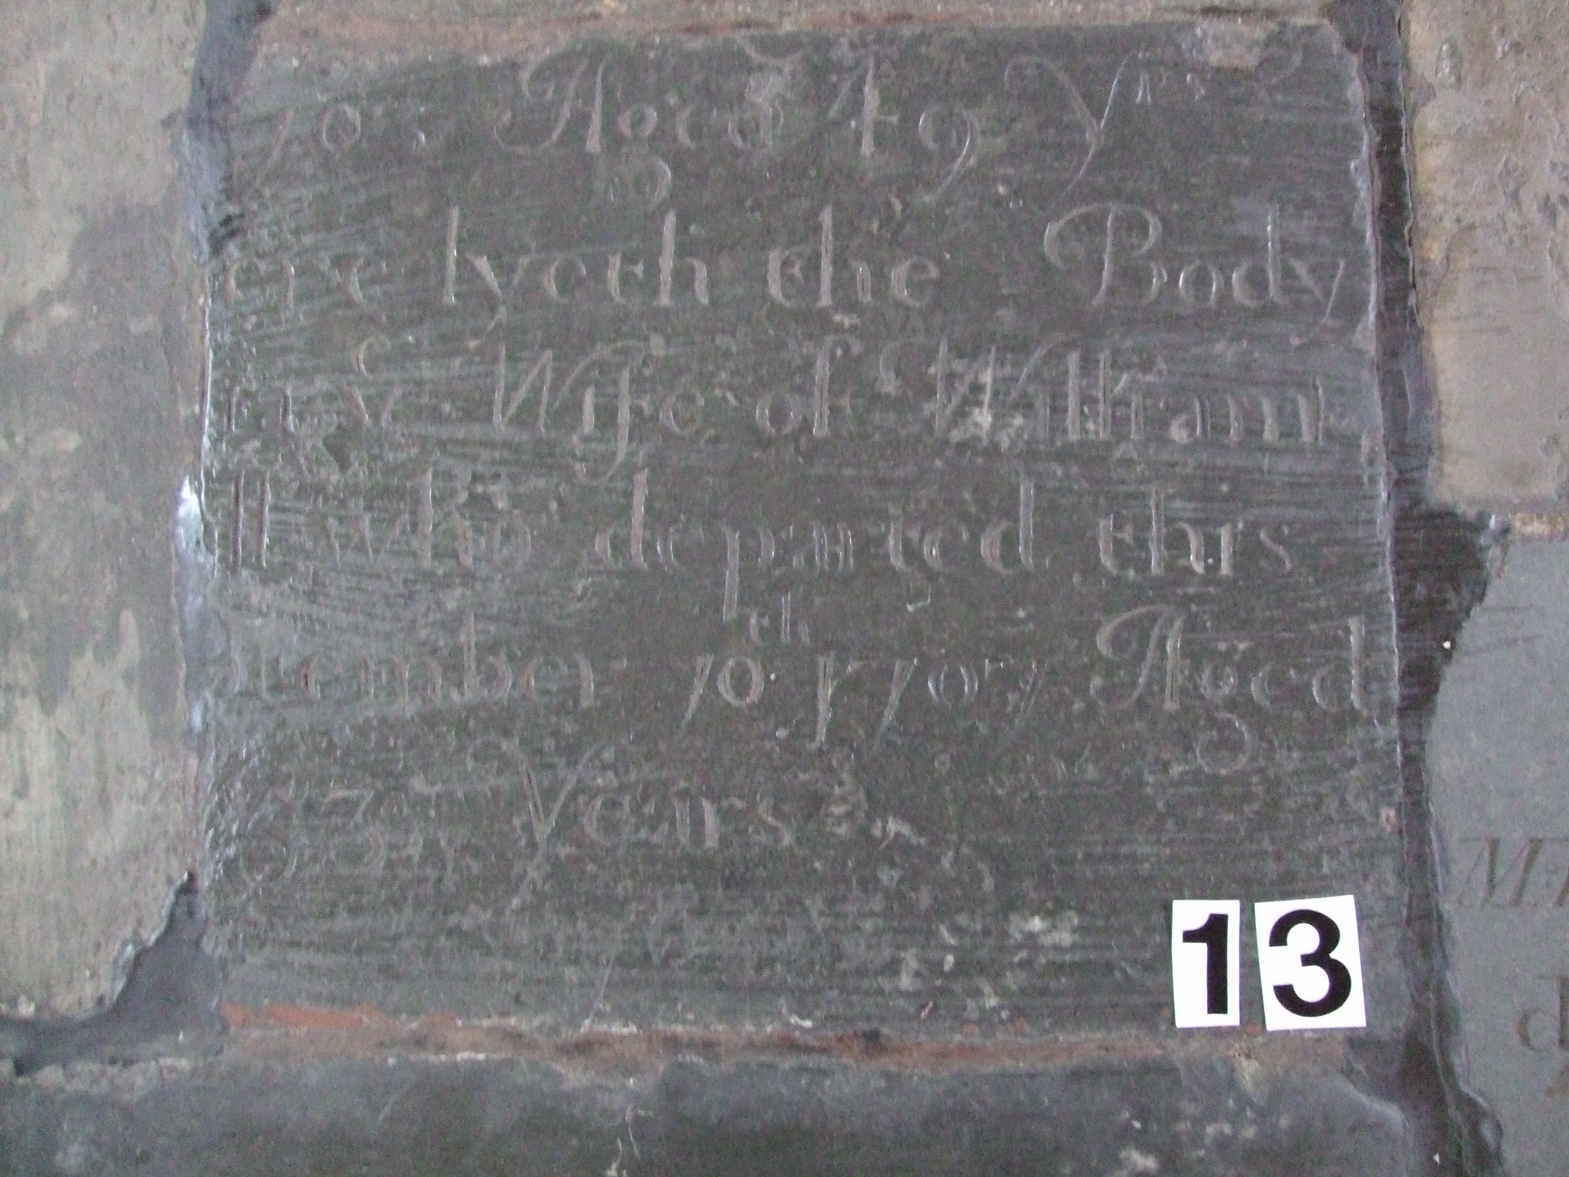 70 . Aged 49 Yrs
ere lyeth the Body
Wife of William
ll who departed this
tember 10th 1707 Aged
63 Years
13
M
d